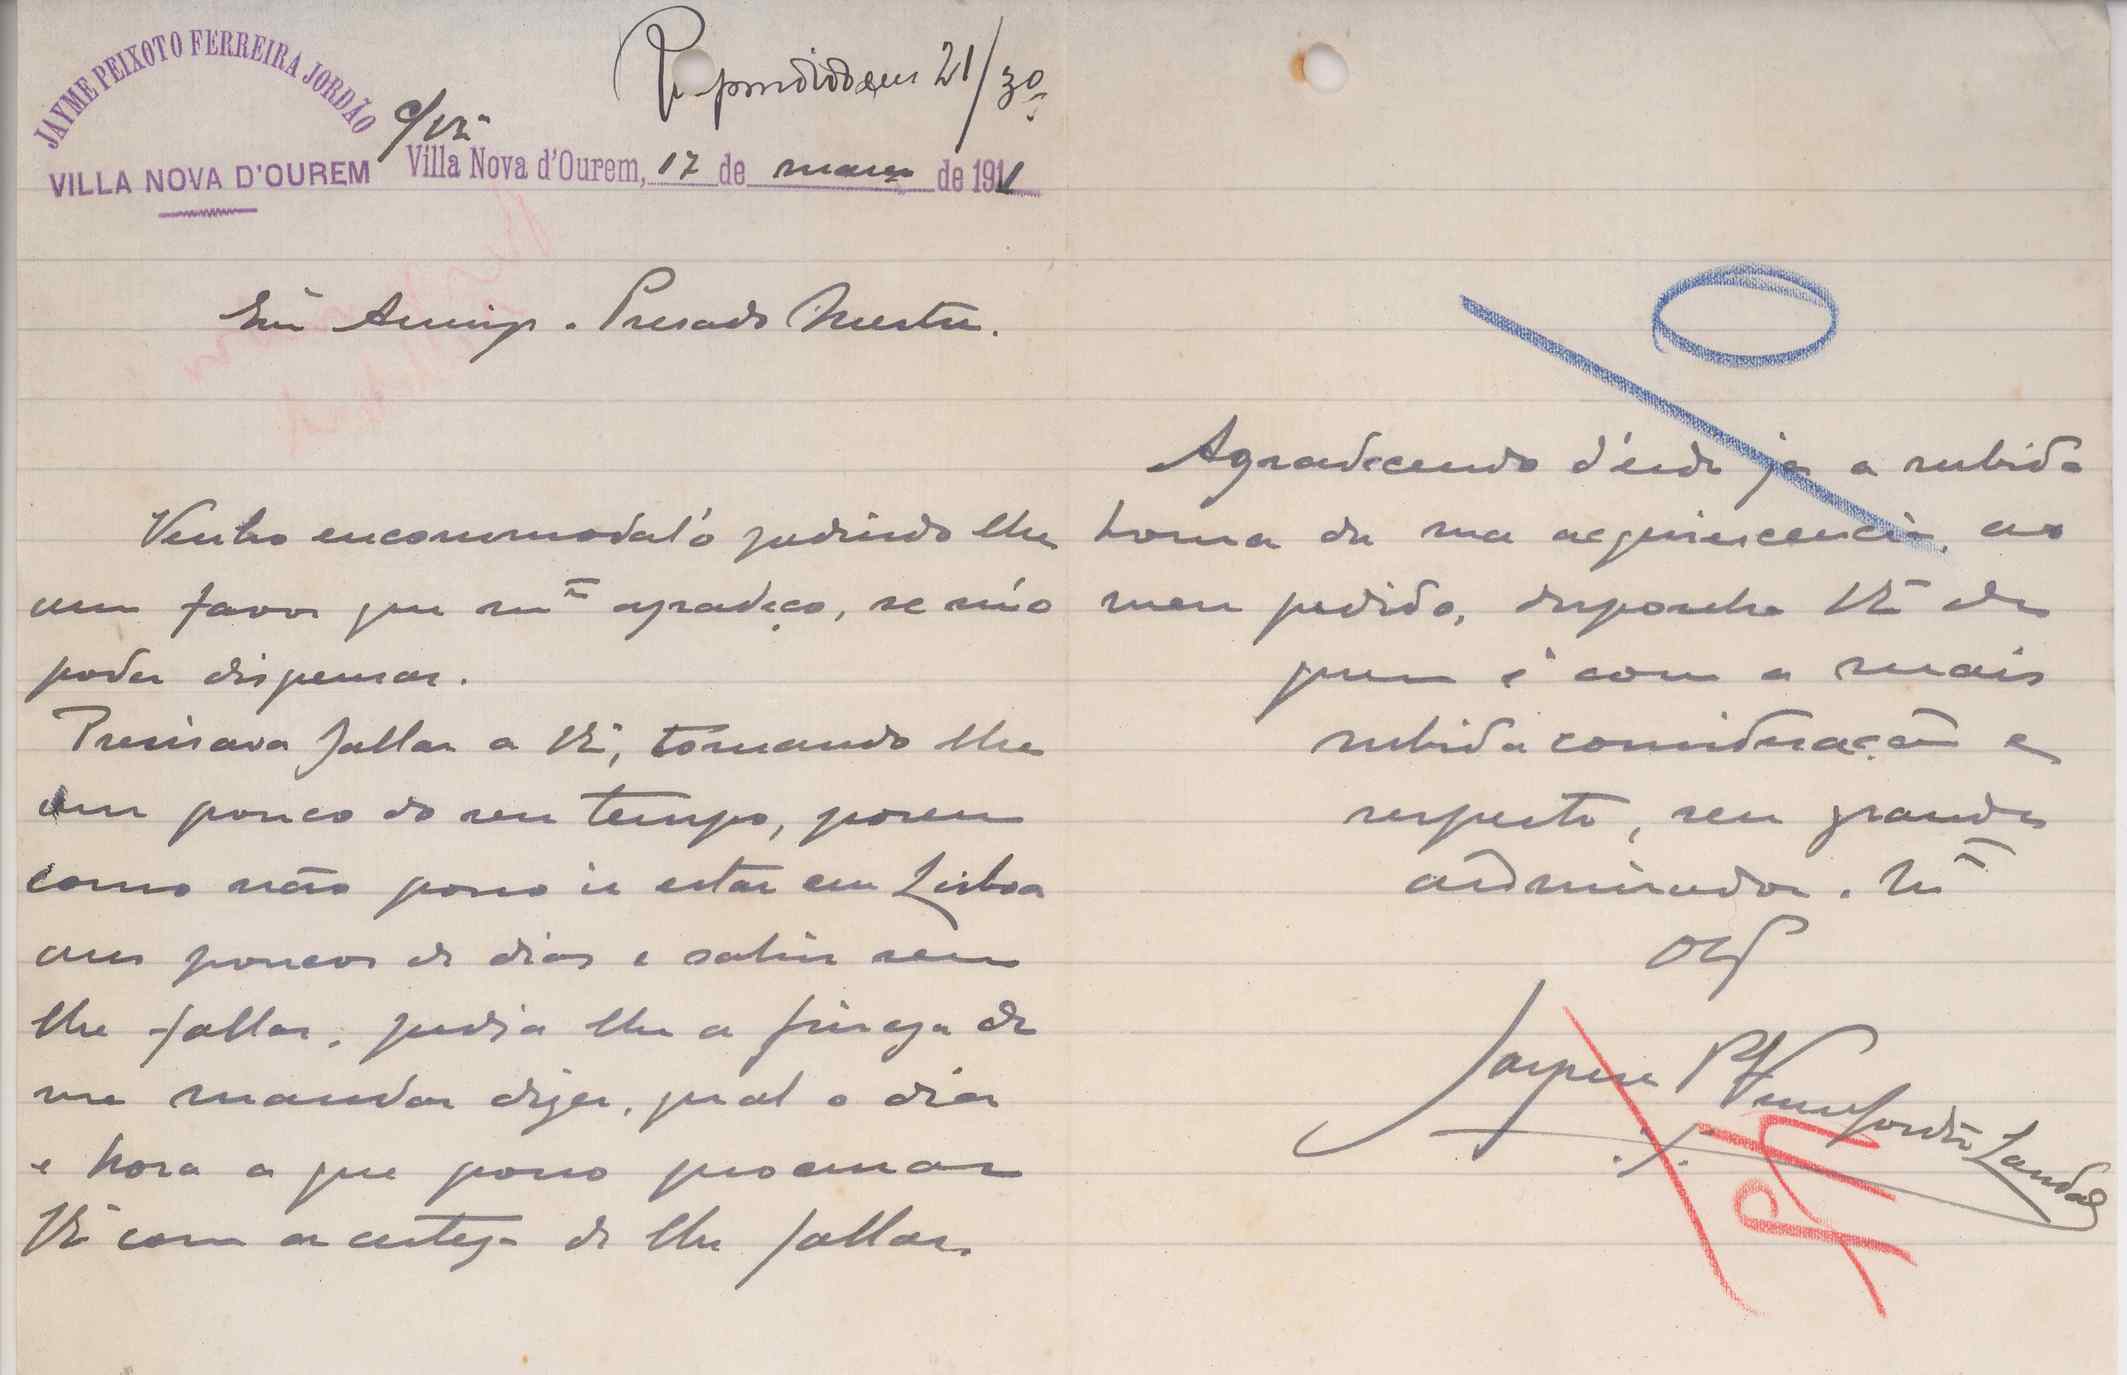 JAYME PEIXOTO FERREIRA JORDÃO
VILLA NOVA D'OUREM
Respondido em 21/3º
C/Vª
Villa Nova d'Ourem, 17 de março de 1911
Amigo. Presado Mestre.
Venho encommodal'o pedindo lhe
um favor que mᵗᵒ agradeço, se m'o
poder dispensar.
Precisava fallar a Vª, tomando lhe
um pouco do seu tempo, porem
como não posso ir estar em Lisboa
uns poucos de dias e sahir sem
lhe fallar, pedia lhe a fineza de
me mandar dizer, qual o dia
e hora a que posso procurar
Vª com a certeza de lhe fallar.
Agradecendo d'esde ja a subida
honra da sua acquiescencia, ao
meu pedido, disponha Vª de
quem é com a mais
subida consideração e
respeito, seu grande
admirador. Mᵗᵒ
Obᵈ
Jayme P Ferrª Jordão
PN